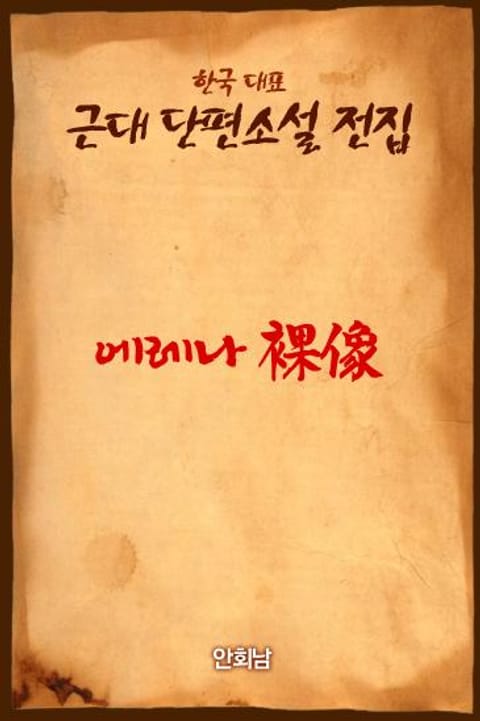 한국 대표
근대 단편소설 전집
에레나 裸像
안회남